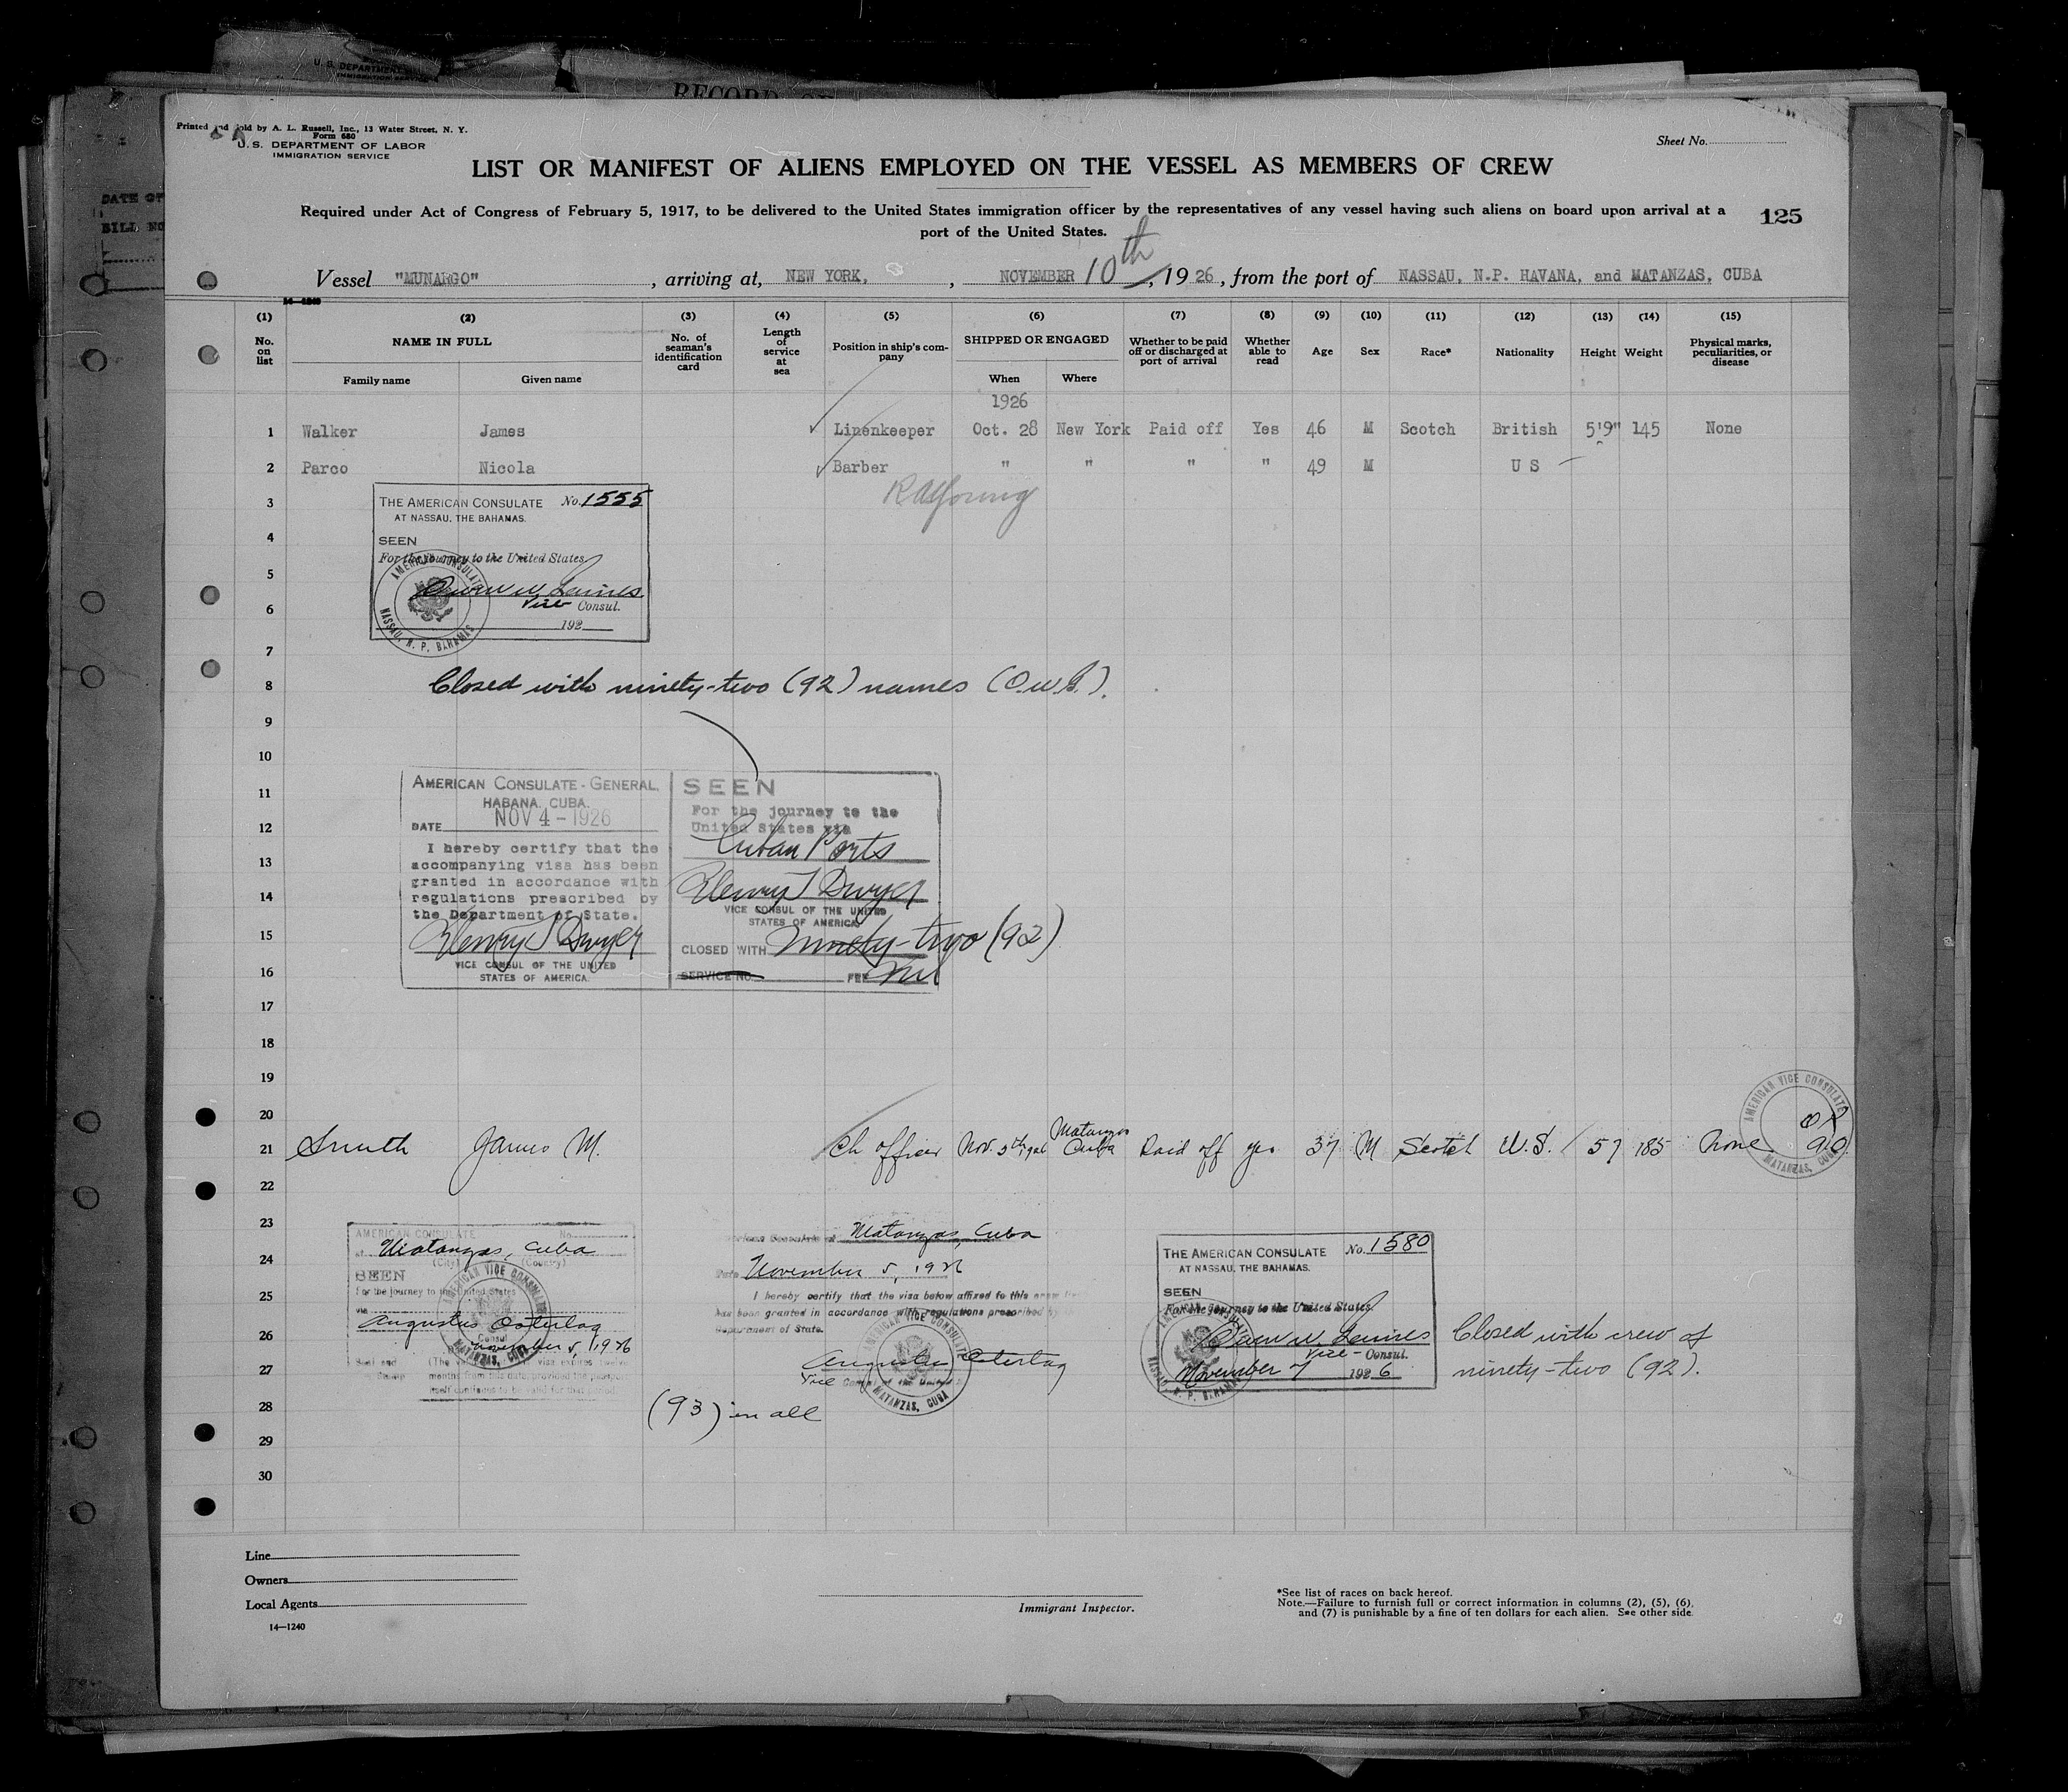 U. S. DEPARTMENT
IMMIGRATION SERVICE
RECORD OF
DATE OF
BILL NO
Printed and sold by A. L. Russell, Inc., 13 Water Street, N. Y.
Form 680
U. S. DEPARTMENT OF LABOR
IMMIGRATION SERVICE
Sheet No.
LIST OR MANIFEST OF ALIENS EMPLOYED ON THE VESSEL AS MEMBERS OF CREW
Required under Act of Congress of February 5, 1917, to be delivered to the United States immigration officer by the representatives of any vessel having such aliens on board upon arrival at a
port of the United States.
125
Vessel "MUNARGO", arriving at, NEW YORK, , NOVEMBER 10th, 1926, from the port of NASSAU, N.P. HAVANA, and MATANZAS, CUBA
14—1240
(1) (2) (3) (4) (5) (6) (7) (8) (9) (10) (11) (12) (13) (14) (15)
No. on list NAME IN FULL No. of seaman's identification card Length of service at sea Position in ship's company SHIPPED OR ENGAGED Whether to be paid off or discharged at port of arrival Whether able to read Age Sex Race* Nationality Height Weight Physical marks, peculiarities, or disease
Family name Given name When Where
1926
1 Walker James Linenkeeper Oct. 28 New York Paid off Yes 46 M Scotch British 5'9" 145 None
2 Parco Nicola Barber " " " " 49 M U S
RAYoung
3
THE AMERICAN CONSULATE No. 1555
AT NASSAU, THE BAHAMAS.
4
SEEN
For the journey to the United States
5
6
Vice Consul.
192
AMERICAN CONSULATE
NASSAU, N. P. BAHAMAS
7
8 Closed with ninety-two (92) names
9
10
11
AMERICAN CONSULATE-GENERAL,
HABANA, CUBA.
DATE NOV 4 - 1926
I hereby certify that the
accompanying visa has been
granted in accordance with
regulations prescribed by
the Department of State.
Henry T Dwyer
VICE CONSUL OF THE UNITED
STATES OF AMERICA
SEEN
For the journey to the
United States via
Cuban Ports
Henry T Dwyer
VICE CONSUL OF THE UNITED
STATES OF AMERICA
CLOSED WITH Ninety-two (92)
SERVICE NO. FEE Nil
12
13
14
15
16
17
18
19
20
21 Smith James M. Ch officer Nov. 5th 1926 Matanzas Cuba Paid off yes 37 M Scotch U.S. 57 185 None
AMERICAN VICE CONSULATE
MATANZAS, CUBA
22
23
24
25
26
27
28
29
30
AMERICAN CONSULATE No.
at Matanzas, Cuba
(City) (Country)
SEEN
For the journey to the United States
via
Augustus Ostertag
Consul
November 5, 1926
AMERICAN VICE CONSULATE
MATANZAS, CUBA
American Consulate at Matanzas, Cuba
Date November 5, 1926
I hereby certify that the visa below affixed to this crew
has been granted in accordance with regulations prescribed by
Department of State.
Augustus Ostertag
Vice Consul of the United
AMERICAN VICE CONSULATE
MATANZAS, CUBA
(93) in all
THE AMERICAN CONSULATE No. 1580
AT NASSAU, THE BAHAMAS.
SEEN
For the journey to the United States
Vice-Consul.
November 7 1926
NASSAU, N. P. BAHAMAS
Closed with crew of
ninety-two (92).
Line
Owners
Local Agents
14—1240
Immigrant Inspector.
*See list of races on back hereof.
Note.—Failure to furnish full or correct information in columns (2), (5), (6),
and (7) is punishable by a fine of ten dollars for each alien. See other side.